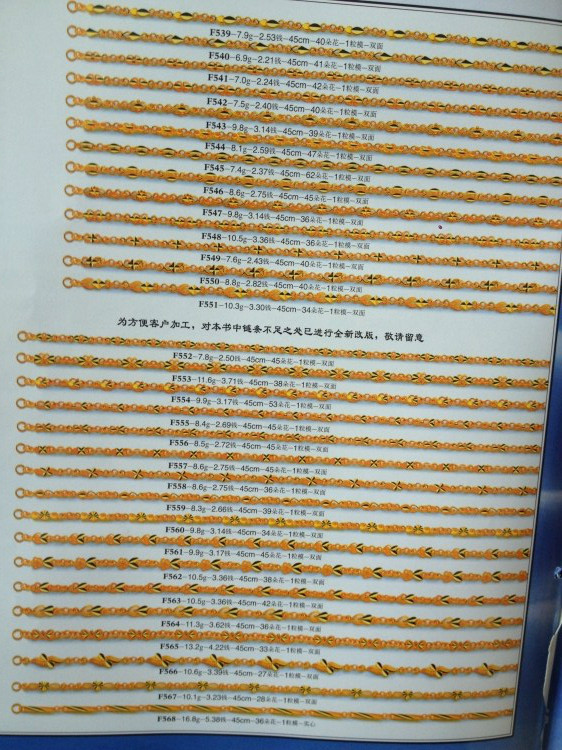 F539–7.9g–2.53钱–45cm–40朵花–1粒模–双面
F540–6.9g–2.21钱–45cm–41朵花–1粒模–双面
F541–7.0g–2.24钱–45cm–42朵花–1粒模–双面
F542–7.5g–2.40钱–45cm–40朵花–1粒模–双面
F543–9.8g–3.14钱–45cm–39朵花–1粒模–双面
F544–8.1g–2.59钱–45cm–47朵花–1粒模–双面
F545–7.4g–2.37钱–45cm–62朵花–1粒模–双面
F546–8.6g–2.75钱–45cm–45朵花–1粒模–双面
F547–9.8g–3.14钱–45cm–36朵花–1粒模–双面
F548–10.5g–3.36钱–45cm–36朵花–1粒模–双面
F549–7.6g–2.43钱–45cm–40朵花–1粒模–双面
F550–8.8g–2.82钱–45cm–40朵花–1粒模–双面
F551–10.3g–3.30钱–45cm–34朵花–1粒模–双面
为方便客户加工，对本书中链条不足之处已进行全新改版，敬请留意
F552–7.8g–2.50钱–45cm–45朵花–1粒模–双面
F553–11.6g–3.71钱–45cm–38朵花–1粒模–双面
F554–9.9g–3.17钱–45cm–53朵花–1粒模–双面
F555–8.4g–2.69钱–45cm–45朵花–1粒模–双面
F556–8.5g–2.72钱–45cm–45朵花–1粒模–双面
F557–8.6g–2.75钱–45cm–45朵花–1粒模–双面
F558–8.6g–2.75钱–45cm–36朵花–1粒模–双面
F559–8.3g–2.66钱–45cm–39朵花–1粒模–双面
F560–9.8g–3.14钱–45cm–34朵花–1粒模–双面
F561–9.9g–3.17钱–45cm–45朵花–1粒模–双面
F562–10.5g–3.36钱–45cm–38朵花–1粒模–双面
F563–10.5g–3.36钱–45cm–42朵花–1粒模–双面
F564–11.3g–3.62钱–45cm–36朵花–1粒模–双面
F565–13.2g–4.22钱–45cm–33朵花–1粒模–双面
F566–10.6g–3.39钱–45cm–27朵花–1粒模–双面
F567–10.1g–3.23钱–45cm–28朵花–1粒模–双面
F568–16.8g–5.38钱–45cm–36朵花–1粒模–实心